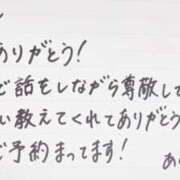 ありがとう!
ご話もしながら尊敬して
い教えてくれてありがとう
ご予約まってます!